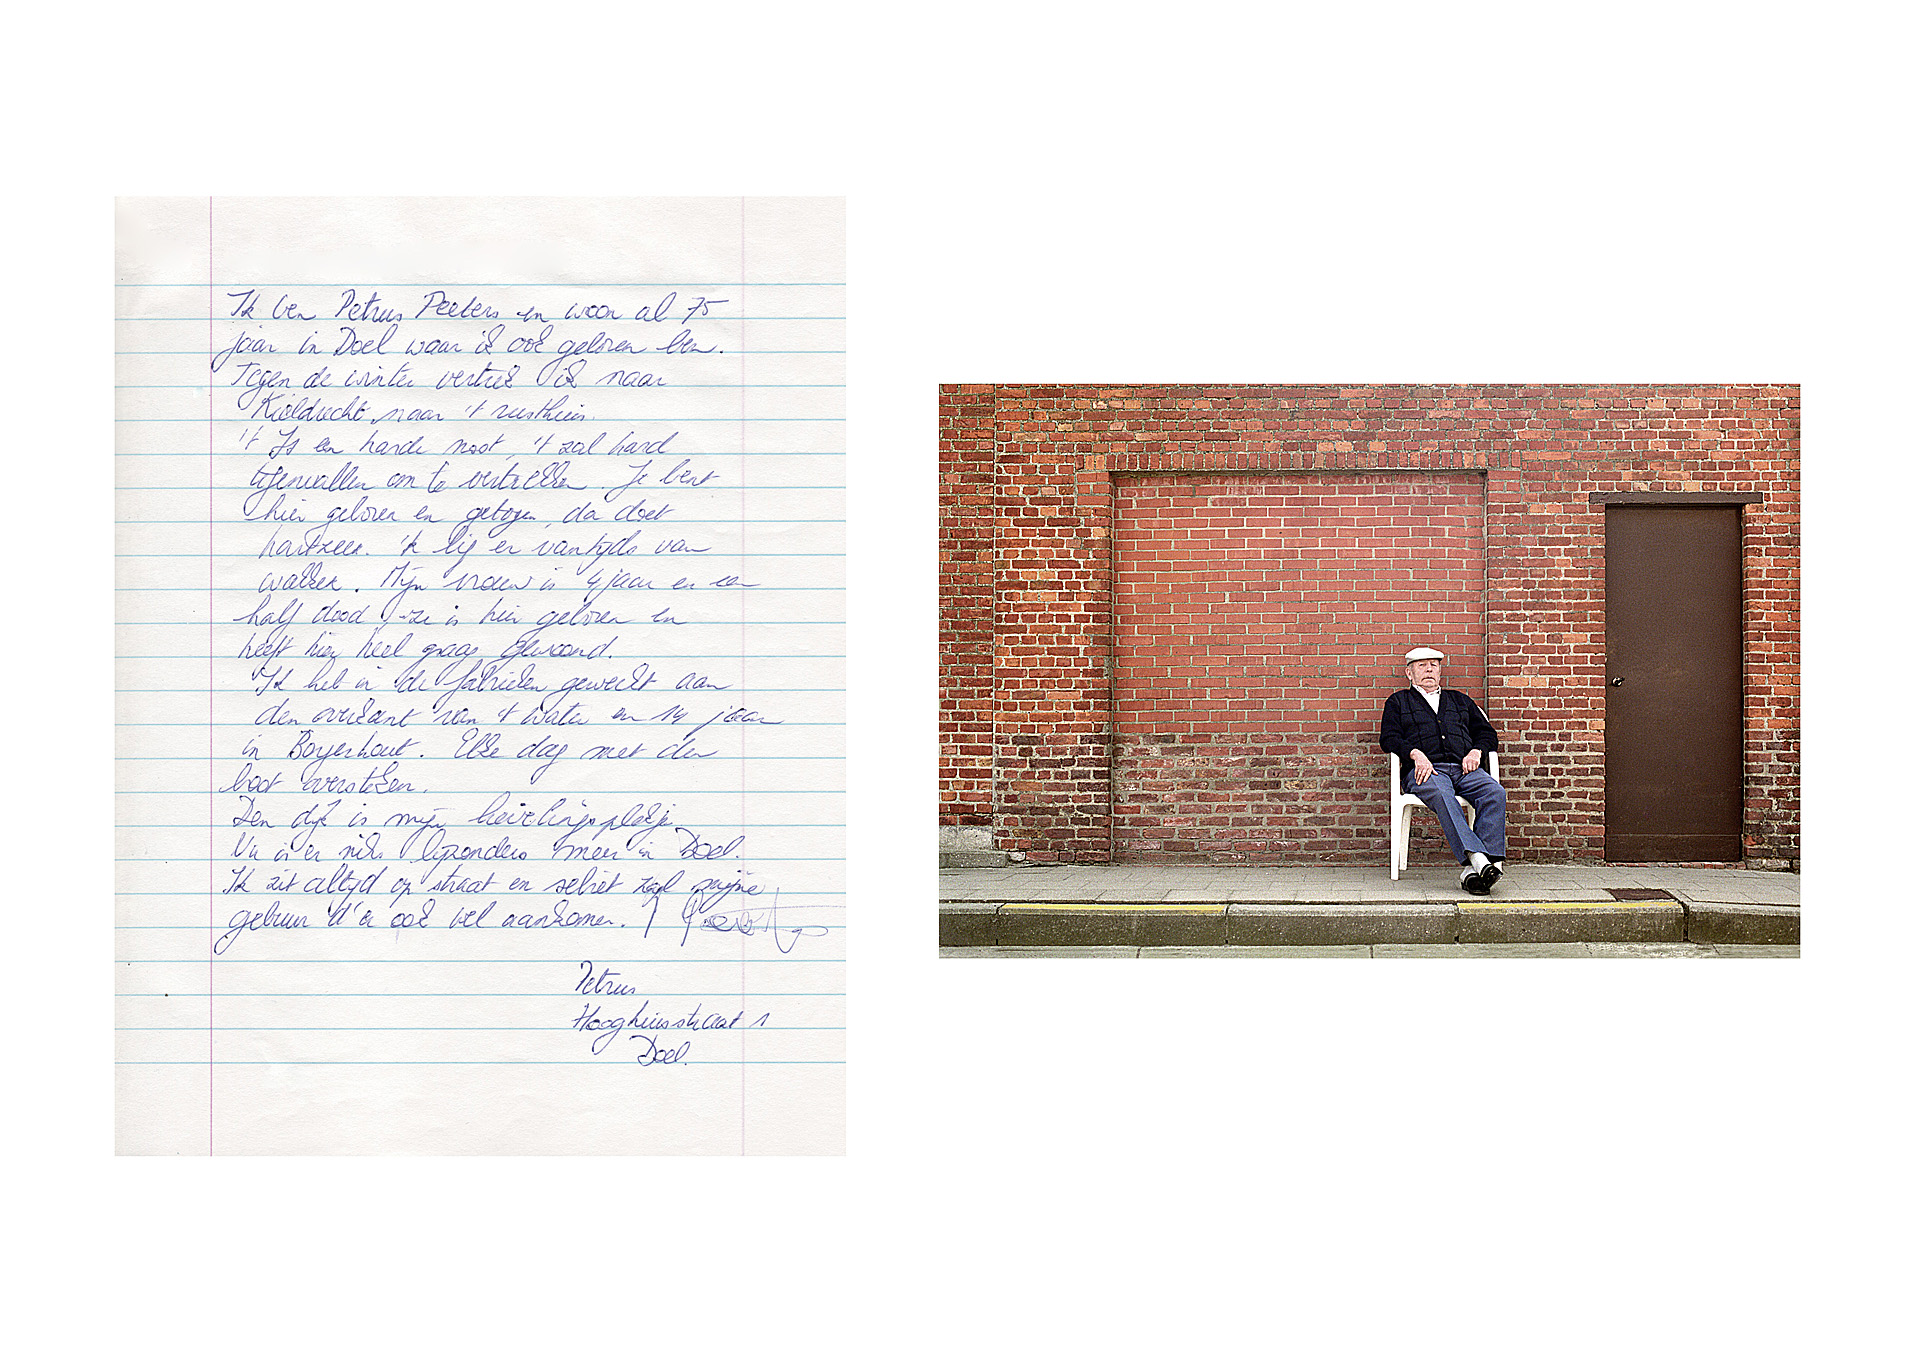 Ik ben Petrus Peeters en woon al 75
jaar in Doel waar ik ook geboren ben.
Tegen de winter vertrek ik naar
Kieldrecht naar 't rusthuis.
't Is een harde noot, 't zal hard
tegenvallen om te vertrekken. Je bent
hier geboren en getogen, da doet
hartzeer. 'k lig er vantijds van
wakker. Mijn vrouw is 4 jaar en een
half dood, ze is hier geboren en
heeft hier heel graag gewoond.
Ik heb in de fabrieken gewerkt aan
den overkant van 't water en 14 jaar
in Boyerhout. Elke dag met den
boot oversteken.
Den dijk is mijn lievelingsplekje
Nu is er niks bijzonders meer in Doel.
Ik zit altijd op straat en seffet
gebuur d'er ook wel aankomen.
Petrus
Hooghuisstraat 1
Doel.